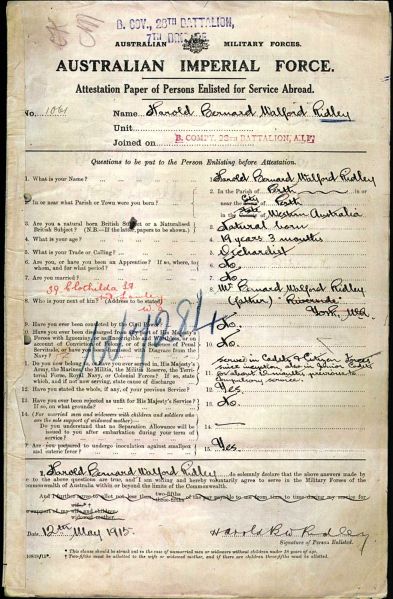 B. COY., 28TH BATTALION,
7TH BRIGADE
AUSTRALIAN MILITARY FORCES.
AUSTRALIAN IMPERIAL FORCE.
Attestation Paper of Persons Enlisted for Service Abroad.
No. 1061 Name Harold Bernard Walford Ridley
Unit
Joined on B. COMPY. 28TH BATTALION, A.I.F.
Questions to be put to the Person Enlisting before Attestation.
1. What is your Name? 1. Harold Bernard Walford Ridley
2. In or near what Parish or Town were you born? 2. In the Parish of Perth in or
near the City of Perth
in the State of Western Australia
3. Are you a natural born British Subject or a Naturalised
British Subject? (N.B.—If the latter, papers to be shown.) 3. Natural born
4. What is your age? 4. 19 years 3 months
5. What is your Trade or Calling? 5. Orchardist
6. Are you, or have you been an Apprentice? If so, where, to
whom, and for what period? 6. No
7. Are you married? 7. No
39 Clothilda St
8. Who is your next of kin? (Address to be stated) 8. Mr Bernard Walford Ridley
(father) "Riverside"
York, W.A.
W4284
9. Have you ever been convicted by the Civil Power? 9. No
10. Have you ever been discharged from any part of His Majesty's
Forces, with Ignominy, or as Incorrigible and Worthless, or on
account of Conviction of Felony, or of a Sentence of Penal
Servitude, or have you been dismissed with Disgrace from the
Navy? 10. No
11. Do you now belong to, or have you ever served in, His Majesty's
Army, the Marines, the Militia, the Militia Reserve, the Terri-
torial Force, Royal Navy, or Colonial Forces? If so, state
which, and if not now serving, state cause of discharge 11. service in Cadets & Citizen Forces
since inception also in Junior Cadets
for about 15 months previous to
compulsory service.
12. Have you stated the whole, if any, of your previous Service? 12. Yes
13. Have you ever been rejected as unfit for His Majesty's Service? If
so, on what grounds? 13. No
14. (For married men and widowers with children and soldiers who
are the sole support of widowed mother)—
Do you understand that no Separation Allowance will be
issued to you after embarkation during your term of
service? 14. —
15. Are you prepared to undergo inoculation against smallpox
and enteric fever? 15. Yes.
I, Harold Bernard Walford Ridley do solemnly declare that the above answers made by
me to the above questions are true, and I am willing and hereby voluntarily agree to serve in the Military Forces of the
Commonwealth of Australia within or beyond the limits of the Commonwealth.
And I further agree to allot not less than two-fifths of the pay payable to me from time to time during my service for
support of my wife and children
widowed mother.
Date 12th May 1915. Harold B W Ridley
Signature of Person Enlisted.
* This clause should be struck out in the case of unmarried men or widowers without children under 18 years of age.
† Two-fifths must be allotted to the wife or widowed mother, and if there are children three-fifths must be allotted.